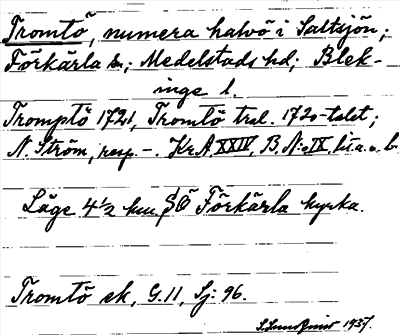 Tromtö, numera halvö i Saltsjön;
Förkärla sn; Medelstads hd; Blek-
inge l.
Tromptö 1721, Tromtö trol. 1720-talet;
N. Ström, resp. -. Kr.A. XXIV, B. N:o IX, lit. a. o. b.
Läge 4½ km SÖ Förkärla kyrka.
Tromtö ek, G. 11, Sj: 96.
1937.